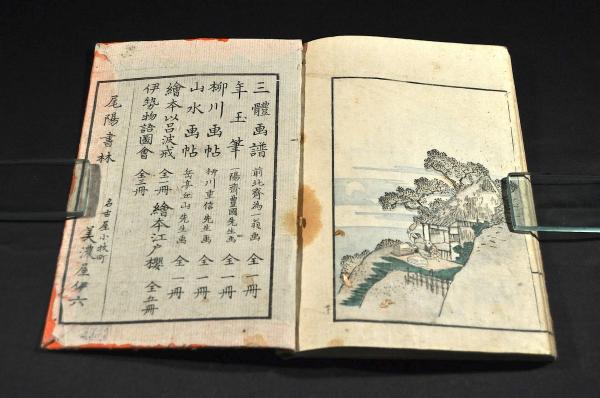 三體画譜 前北斎為一翁画 全一冊
年玉筆 一陽齋豊國先生画 全一冊
柳川画帖 柳川重信先生画 全一冊
山水画帖 岳亭丘山先生画 全一冊
繪本以呂波戒 全一冊 繪本江戸櫻 全五冊
伊勢物語圖會 全三冊
尾陽書林 名古屋小牧町 美濃屋伊六